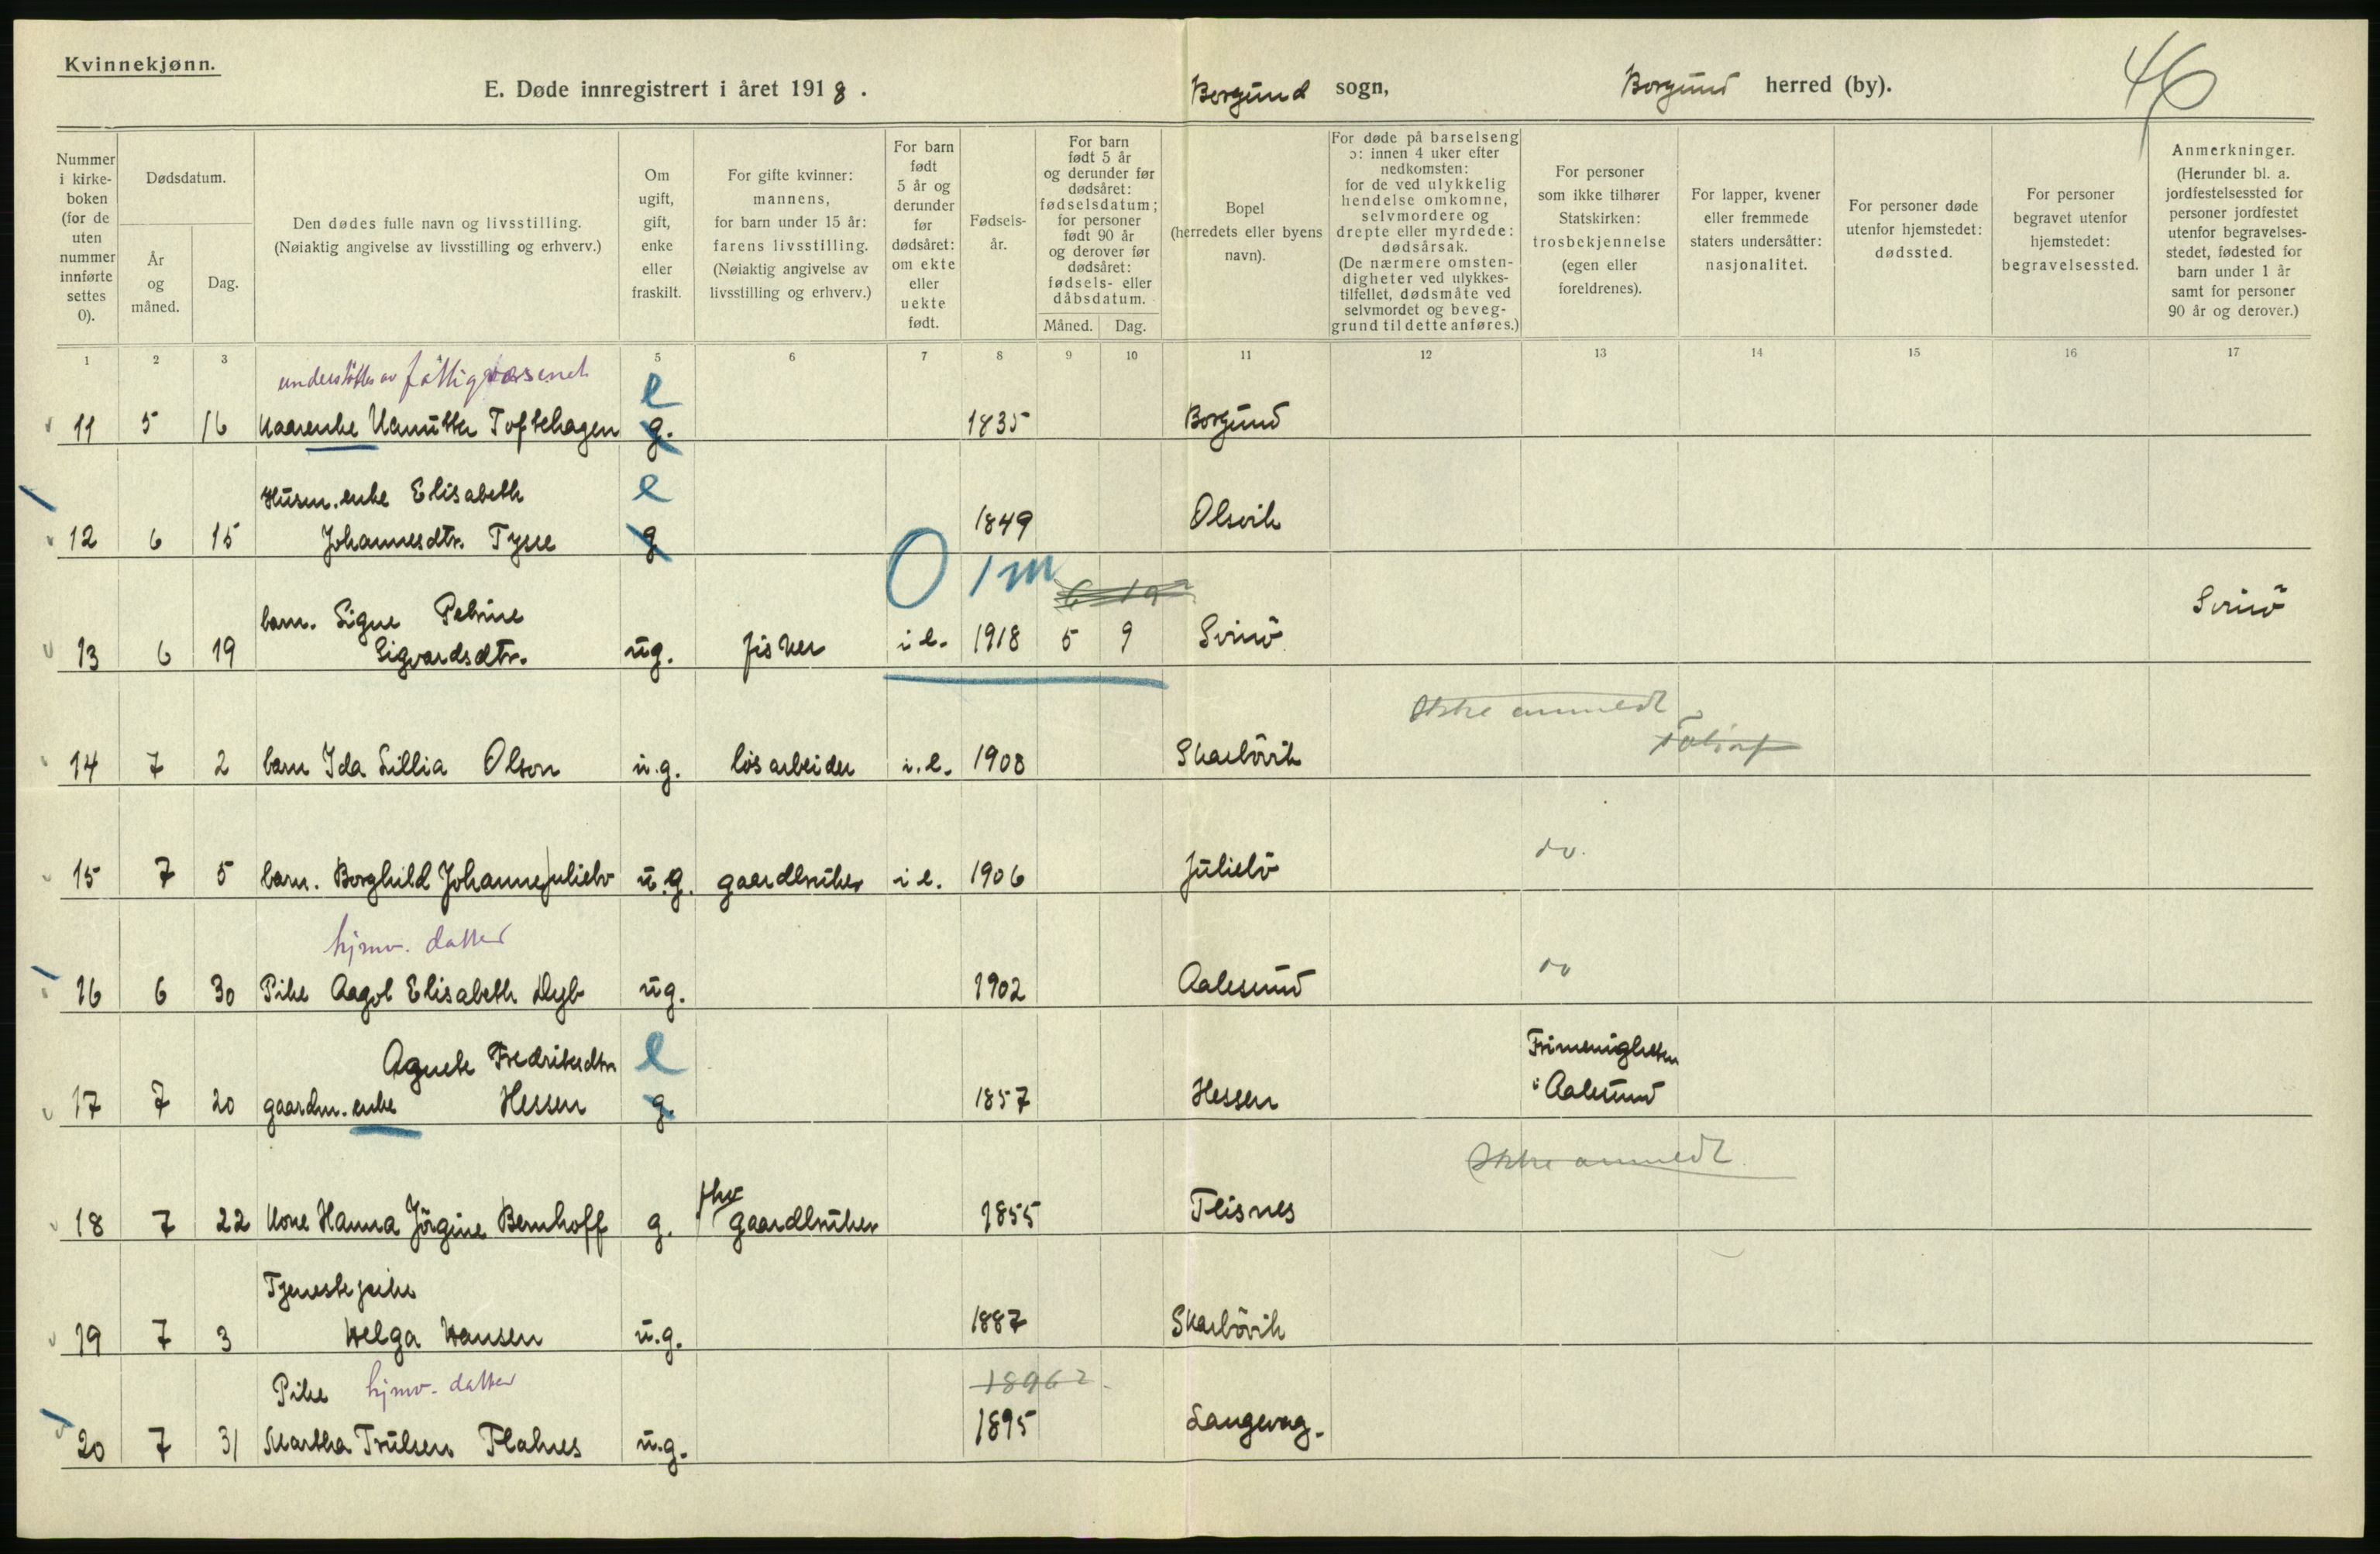 Kvinnekjønn.
E. Døde innregistrert i året 1918.
Borgund sogn,
Borgund herred (by).
46
Nummer i kirke- boken (for de uten nummer innførte settes 0).
Dødsdatum.
År og måned.
Dag.
Den dødes fulle navn og livsstilling.
(Nøiaktig angivelse av livsstilling og erhverv.)
Om ugift, gift, enke eller fraskilt.
For gifte kvinner: mannens, for barn under 15 år: farens livsstilling. (Nøiaktig angivelse av livsstilling og erhverv.)
For barn født 5 år og derunder før dødsåret: om ekte eller uekte født.
Fødsels- år.
For barn født 5 år og derunder før dødsåret: fødselsdatum; for personer født 90 år og derover før dødsåret: fødsels- eller dåbsdatum.
Måned. Dag.
Bopel (herredets eller byens navn).
For døde på barselseng ɔ: innen 4 uker efter nedkomsten: for de ved ulykkelig hendelse omkomne, selvmordere og drepte eller myrdede: dødsårsak. (De nærmere omsten- digheter ved ulykkes- tilfellet, dødsmåte ved selvmordet og beveg- grund til dette anføres.)
For personer som ikke tilhører Statskirken: trosbekjennelse (egen eller foreldrenes).
For lapper, kvener eller fremmede staters undersåtter: nasjonalitet.
For personer døde utenfor hjemstedet: dødssted.
For personer begravet utenfor hjemstedet: begravelsessted.
Anmerkninger. (Herunder bl. a. jordfestelsessted for personer jordfestet utenfor begravelses- stedet, fødested for barn under 1 år samt for personer 90 år og derover.)
1 2 3 5 6 7 8 9 10 11 12 13 14 15 16 17
understøttes av fattigvæsenet e
11 5 16 Toftehagen g. 1835 Borgund
Husm. enke Elisabeth e
12 6 15 Johannesdtr. Tysse g 1849 Olsvik
0 1m 6 19
barn. Signe Petrine
13 6 19 Sigvardsdtr. ug. fisker i e. 1918 5 9 Svinö Svinö
Ikke anmeldt
14 7 2 barn Ida Lillia Olson u.g. løsarbeider i. e. 1908 Skarbövik
15 7 5 barn. Borghild Johanne Julielv u.g. gaardbruker i e. 1906 Julielv do.
hjmv. datter
16 6 30 Pike Aagot Elisabeth Dyb ug. 1902 Aalesund do
Agnete Fredriksdtr e Frimenigheten
17 7 20 gaardm. enke Hessen g. 1857 Hessen i Aalesund
Ikke anmeldt
18 7 22 Kone Hanna Jörgine Bernhoff g. fhv gaardbruker 1855 Flisnes
Tjenestepike
19 7 3 Helga Hansen u.g. 1887 Skarbövik
Pike hjmv. datter 1896?
20 7 31 Martha Trulsen Flatnes u.g. 1895 Langevag.